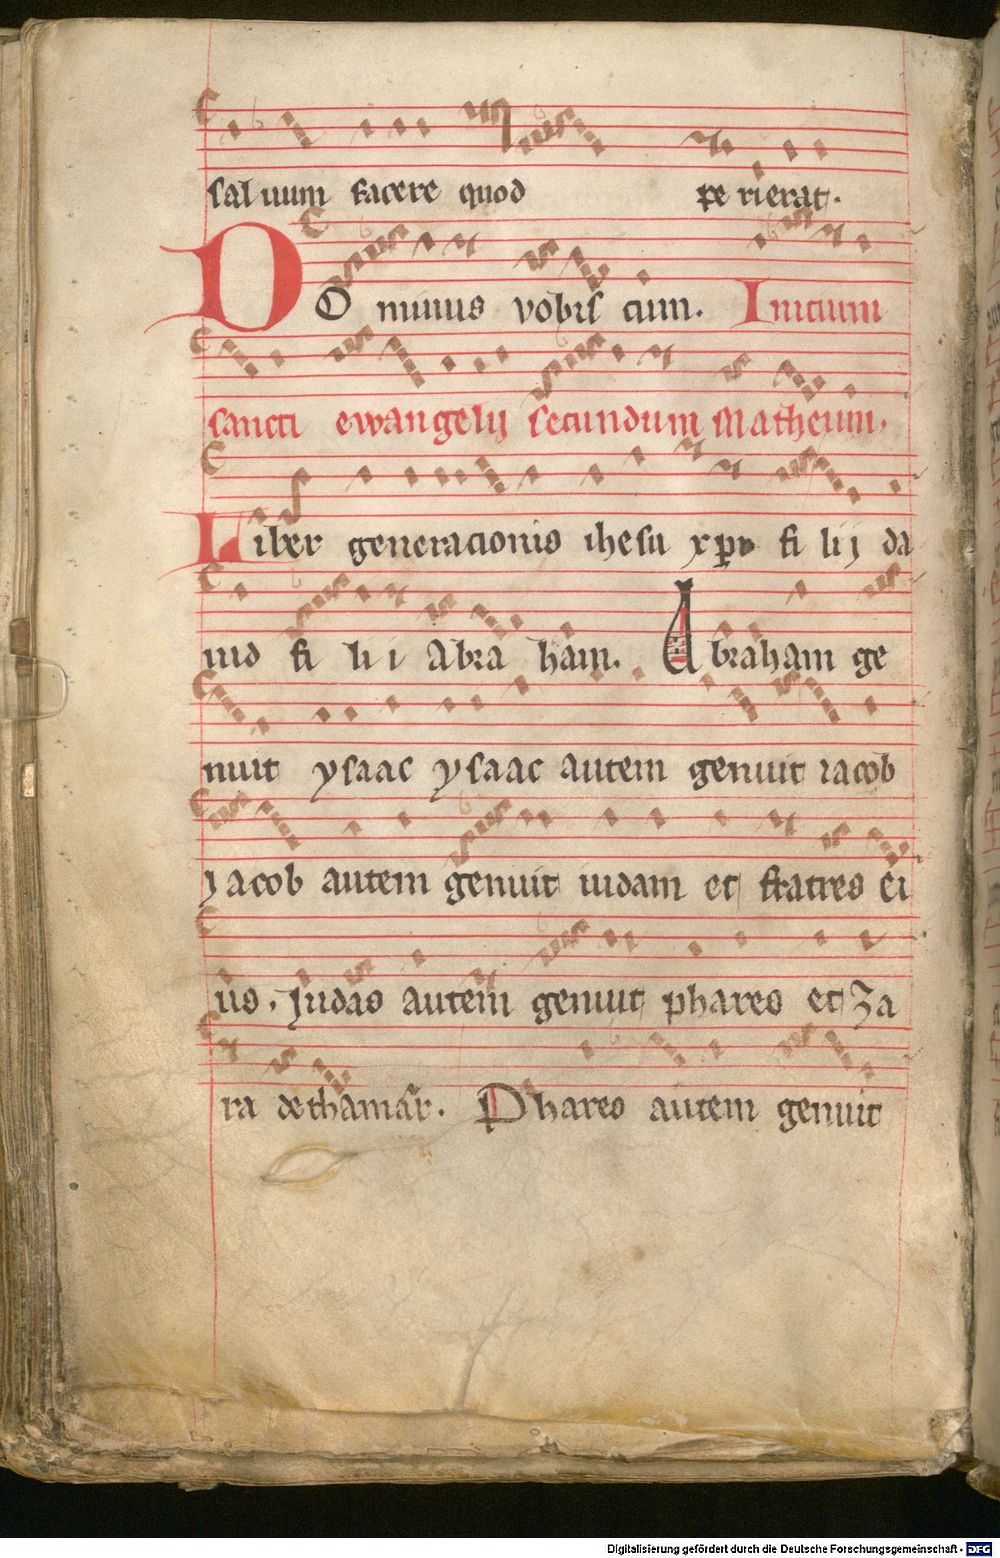 saluum facere quod perierat.
DOminus vobiscum. Inicium
sancti ewangelij secundum Matheum.
Liber generacionis ihesu xpi filij da
uid filii Abraham. Abraham ge
nuit ysaac ysaac autem genuit iacob
yacob autem genuit iudam et fratres ei
us. Judas autem genuit phares et Za
ra dethamar. Phares autem genuit
Digitalisierung gefördert durch die Deutsche Forschungsgemeinschaft - DFG